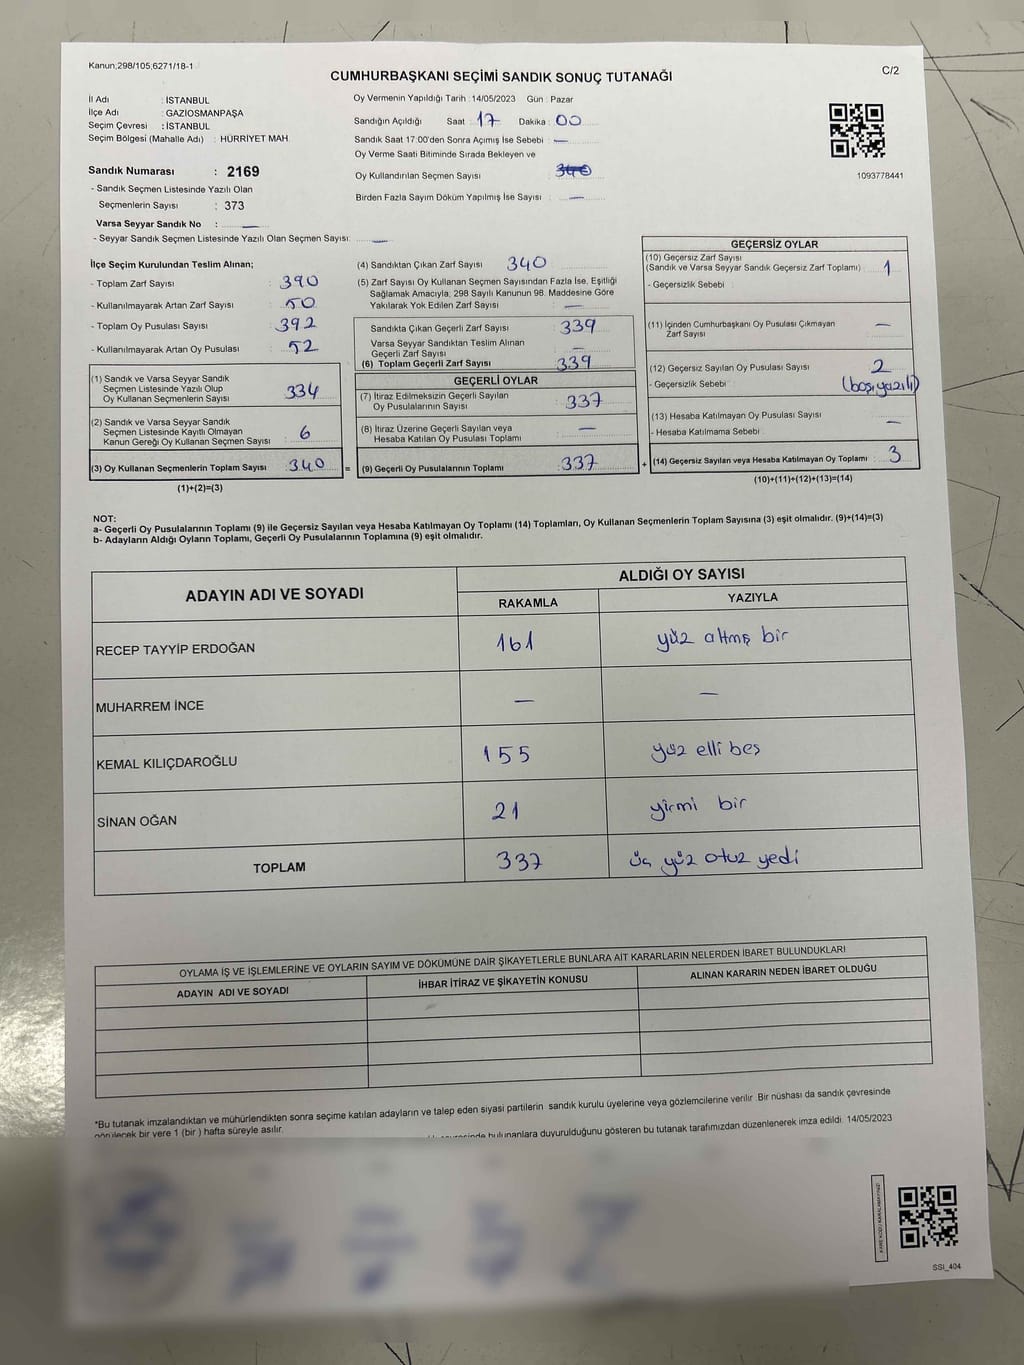 Kanun;298/105;6271/18-1
C/2
CUMHURBAŞKANI SEÇİMİ SANDIK SONUÇ TUTANAĞI
İl Adı : İSTANBUL
İlçe Adı : GAZİOSMANPAŞA
Seçim Çevresi : İSTANBUL
Seçim Bölgesi (Mahalle Adı) : HÜRRİYET MAH.
Sandık Numarası : 2169
- Sandık Seçmen Listesinde Yazılı Olan
Seçmenlerin Sayısı : 373
Varsa Seyyar Sandık No : —
- Seyyar Sandık Seçmen Listesinde Yazılı Olan Seçmen Sayısı: —
Oy Vermenin Yapıldığı Tarih : 14/05/2023 Gün : Pazar
Sandığın Açıldığı Saat 17 Dakika : 00
Sandık Saat 17:00'den Sonra Açımış İse Sebebi : —
Oy Verme Saati Bitiminde Sırada Bekleyen ve
Oy Kullandırılan Seçmen Sayısı :
Birden Fazla Sayım Döküm Yapılmış İse Sayısı : —
1093778441
İlçe Seçim Kurulundan Teslim Alınan;
- Toplam Zarf Sayısı : 390
- Kullanılmayarak Artan Zarf Sayısı : 50
- Toplam Oy Pusulası Sayısı : 392
- Kullanılmayarak Artan Oy Pusulası : 52
(1) Sandık ve Varsa Seyyar Sandık
Seçmen Listesinde Yazılı Olup
Oy Kullanan Seçmenlerin Sayısı : 334
(2) Sandık ve Varsa Seyyar Sandık
Seçmen Listesinde Kayıtlı Olmayan
Kanun Gereği Oy Kullanan Seçmen Sayısı : 6
(3) Oy Kullanan Seçmenlerin Toplam Sayısı : 340 =
(1)+(2)=(3)
(4) Sandıktan Çıkan Zarf Sayısı : 340
(5) Zarf Sayısı Oy Kullanan Seçmen Sayısından Fazla İse, Eşitliği
Sağlamak Amacıyla, 298 Sayılı Kanunun 98. Maddesine Göre
Yakılarak Yok Edilen Zarf Sayısı : —
Sandıkta Çıkan Geçerli Zarf Sayısı : 339
Varsa Seyyar Sandıktan Teslim Alınan
Geçerli Zarf Sayısı : —
(6) Toplam Geçerli Zarf Sayısı : 339
GEÇERLİ OYLAR
(7) İtiraz Edilmeksizin Geçerli Sayılan
Oy Pusulalarının Sayısı : 337
(8) İtiraz Üzerine Geçerli Sayılan veya
Hesaba Katılan Oy Pusulası Toplamı : —
(9) Geçerli Oy Pusulalarının Toplamı : 337 +
GEÇERSİZ OYLAR
(10) Geçersiz Zarf Sayısı
(Sandık ve Varsa Seyyar Sandık Geçersiz Zarf Toplamı) : 1
- Geçersizlik Sebebi :
(11) İçinden Cumhurbaşkanı Oy Pusulası Çıkmayan
Zarf Sayısı : —
(12) Geçersiz Sayılan Oy Pusulası Sayısı : 2
- Geçersizlik Sebebi : (boş, yazılı)
(13) Hesaba Katılmayan Oy Pusulası Sayısı : —
- Hesaba Katılmama Sebebi :
(14) Geçersiz Sayılan veya Hesaba Katılmayan Oy Toplamı : 3
(10)+(11)+(12)+(13)=(14)
NOT:
a- Geçerli Oy Pusulalarının Toplamı (9) ile Geçersiz Sayılan veya Hesaba Katılmayan Oy Toplamı (14) Toplamları, Oy Kullanan Seçmenlerin Toplam Sayısına (3) eşit olmalıdır. (9)+(14)=(3)
b- Adayların Aldığı Oyların Toplamı, Geçerli Oy Pusulalarının Toplamına (9) eşit olmalıdır.
ADAYIN ADI VE SOYADI
ALDIĞI OY SAYISI
RAKAMLA YAZIYLA
RECEP TAYYİP ERDOĞAN 161 yüz altmış bir
MUHARREM İNCE — —
KEMAL KILIÇDAROĞLU 155 yüz elli beş
SİNAN OĞAN 21 yirmi bir
TOPLAM 337 üç yüz otuz yedi
OYLAMA İŞ VE İŞLEMLERİNE VE OYLARIN SAYIM VE DÖKÜMÜNE DAİR ŞİKAYETLERLE BUNLARA AİT KARARLARIN NELERDEN İBARET BULUNDUKLARI
ADAYIN ADI VE SOYADI
İHBAR İTİRAZ VE ŞİKAYETİN KONUSU
ALINAN KARARIN NEDEN İBARET OLDUĞU
*Bu tutanak imzalandıktan ve mühürlendikten sonra seçime katılan adayların ve talep eden siyasi partilerin sandık kurulu üyelerine veya gözlemcilerine verilir. Bir nüshası da sandık çevresinde
görülecek bir yere 1 (bir ) hafta süreyle asılır.
bulunanlara duyurulduğunu gösteren bu tutanak tarafımızdan düzenlenerek imza edildi. 14/05/2023
SSI_404